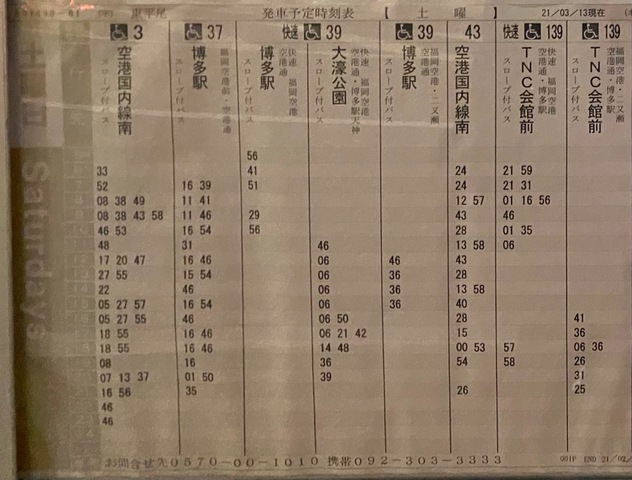 東平尾 発車予定時刻表 【 土 曜 】 21/03/13現在
3 37 快速 39 39 43 快速 139 139
空港国内線南
スロープ付バス
博多駅
福岡空港前・空港通
スロープ付バス
博多駅
快速 福岡空港
空港通
スロープ付バス
大濠公園
快速 福岡空港
空港通・博多駅・天神
スロープ付バス
博多駅
福岡空港・二又瀬
空港通
スロープ付バス
空港国内線南
TNC会館前
快速 福岡空港
空港通・博多駅
スロープ付バス
TNC会館前
福岡空港・二又瀬
空港通・博多駅
スロープ付バス
56
33 41 24 21 59
52 16 39 51 24 21 31
08 38 49 11 41 12 57 01 16 56
08 38 43 58 11 46 29 43 46
46 53 16 54 56 28 01 35
48 31 46 13 58 06
17 20 47 16 46 06 46 43
27 55 15 54 06 36 28
22 46 06 36 13 58
05 27 57 16 54 06 36 40
05 27 55 46 06 50 28 41
18 55 16 46 06 21 42 15 36
18 55 16 46 14 48 00 53 57 06 36
08 16 36 54 58 26
07 13 37 01 50 39 31
16 56 35 26 25
46
46
Saturdays
お問合せ先0570-00-1010 携帯092-303-3333